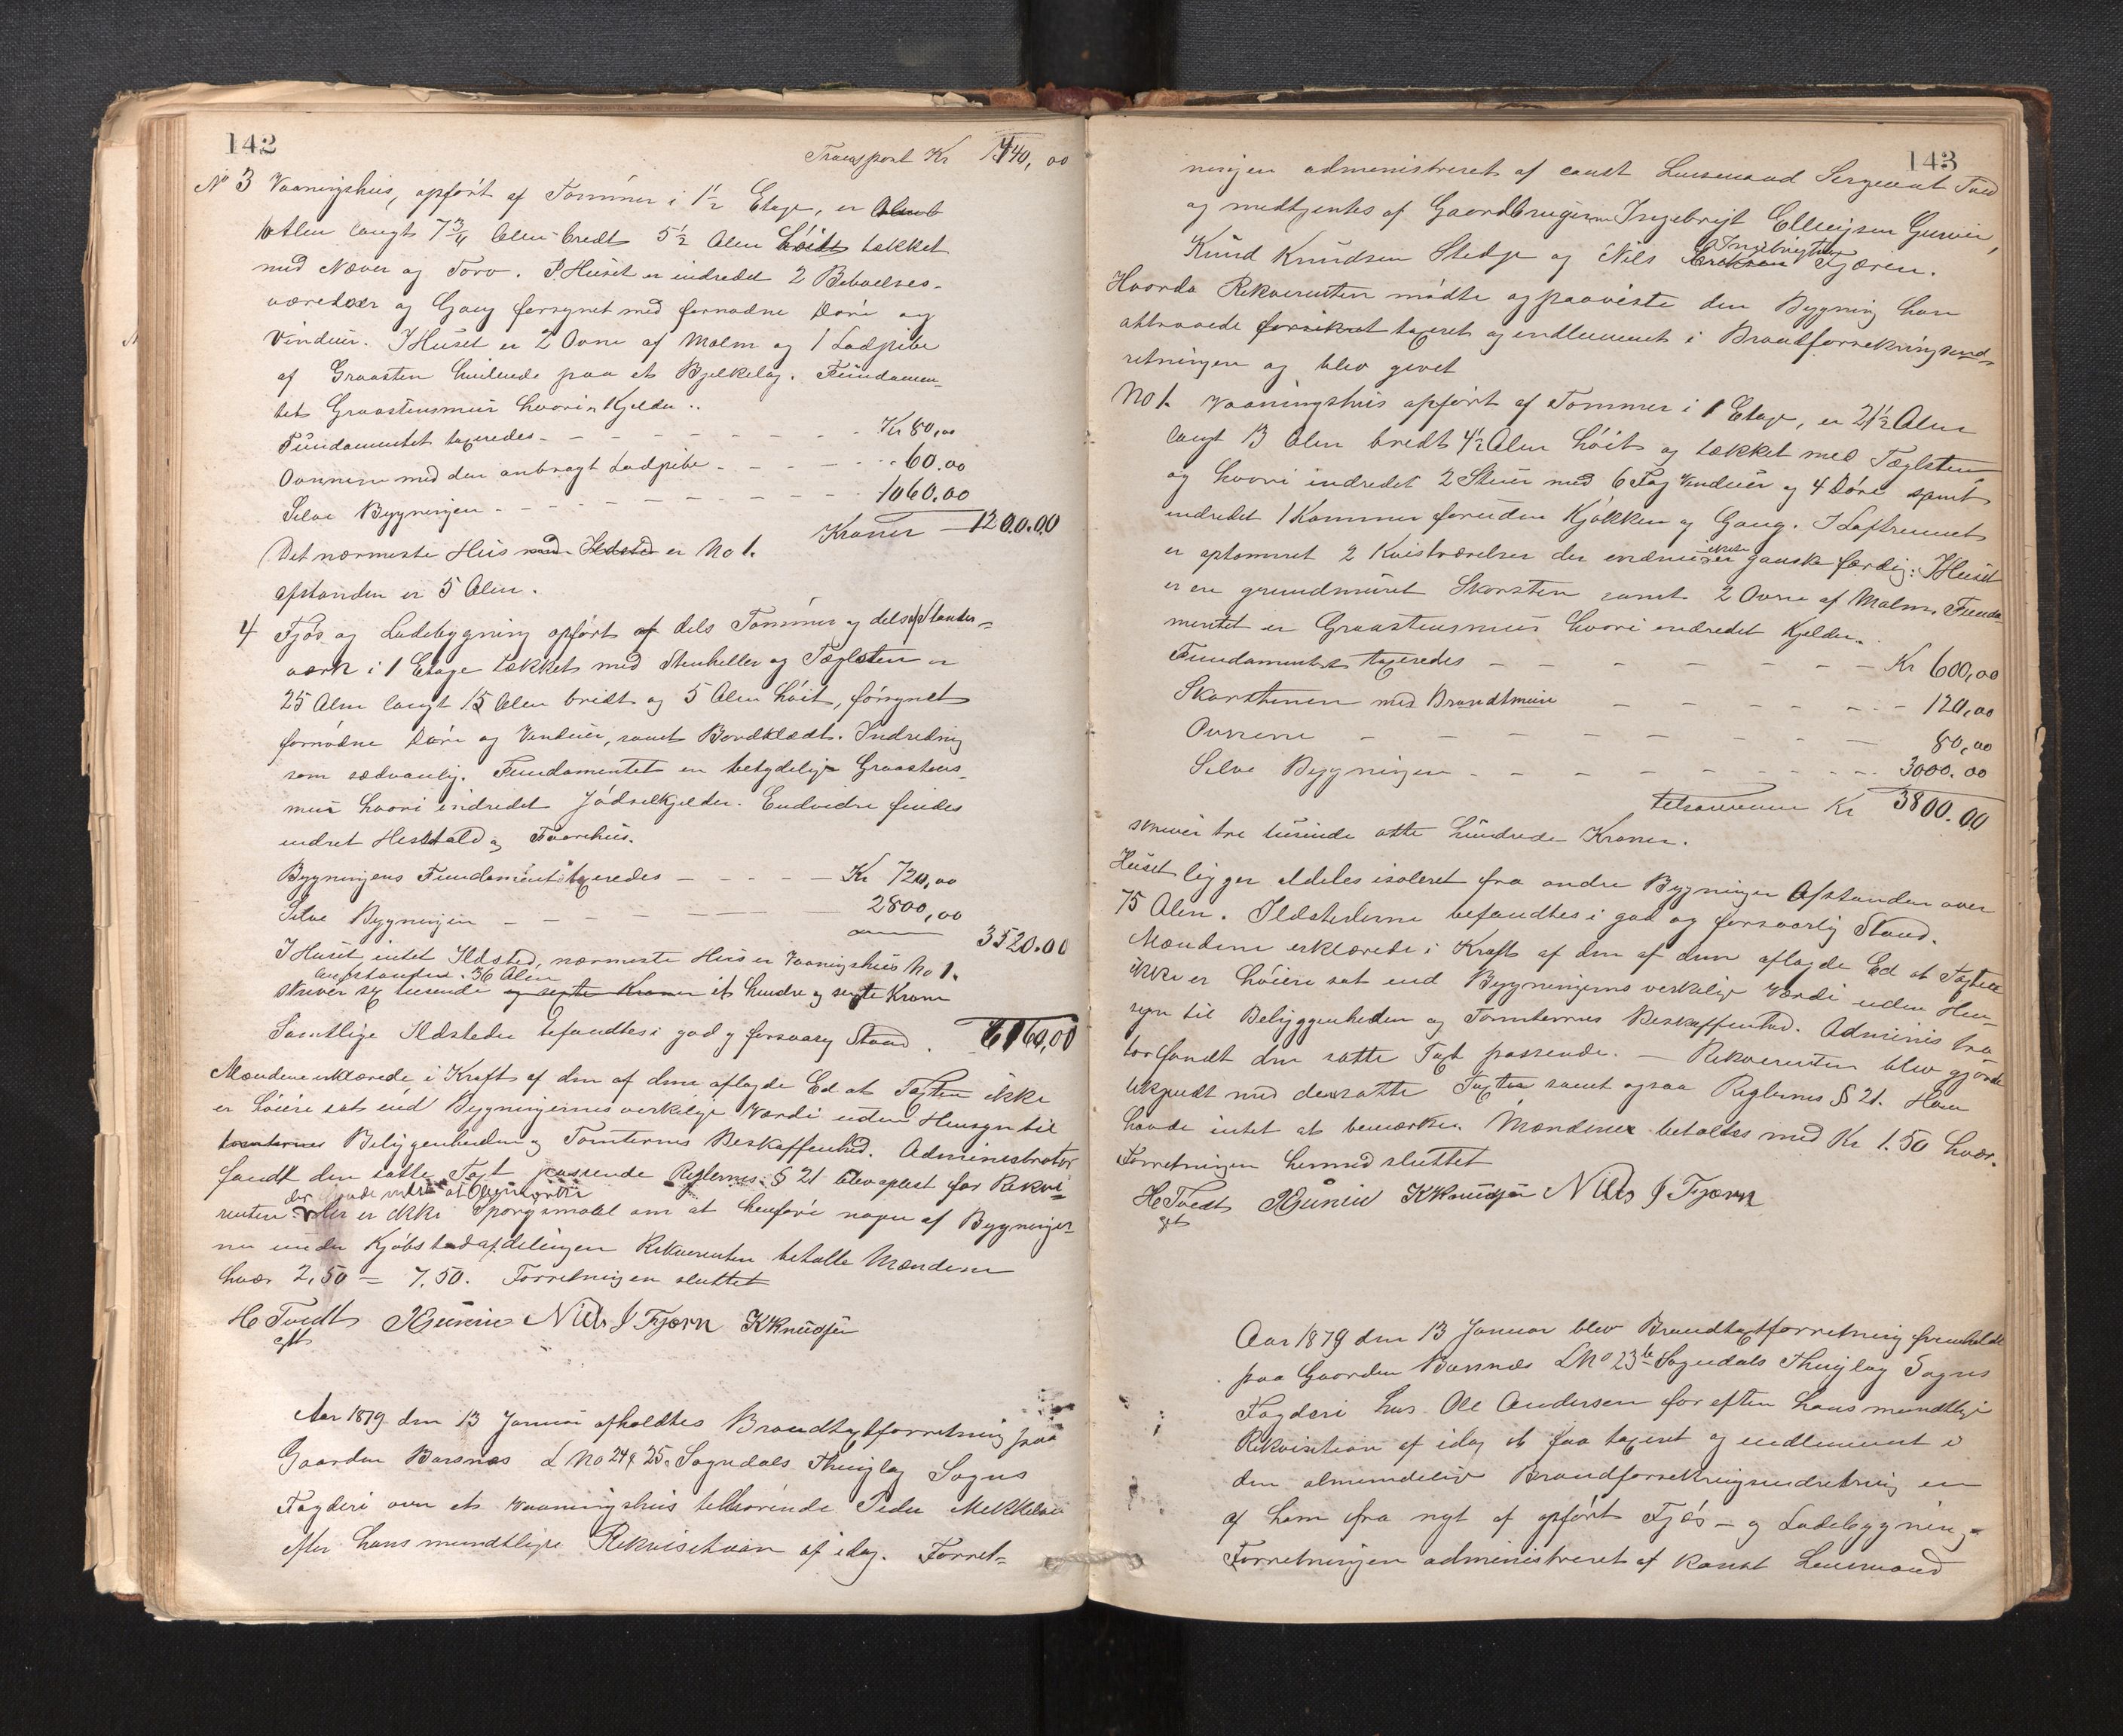 142
Transport Kr 1440,00
No 3 Vaaningshus, opført af Tømmer i 1½ Etage, er
10 Alen langt 7¾ Alen bredt 5½ Alen høit tækket
med Næver og Torv. I Huset er indredet 2 Beboelses-
værelser og Gang forsynet med fornødne Døre og
Vinduer. I Huset er 2 Ovne af Malm og 1 Ladpibe
af Graasten hvilende paa et Bjelkelag. Fundamen-
tet Graastensmur hvori Kjelder.
Fundamentet taxeredes - - - Kr 80,00
Ovnene med den anbragt Ladpibe - - - 60.00
Selve Bygningen - - - 1060.00
Kroner 1200.00
Det nærmeste Hus med Ildsted er No 1.
Afstanden er 5 Alen.
4 Fjøs og Ladebygning opført af dels Tømmer og dels af Stander-
værk i 1 Etage tækket med Stenheller og Tæglsten er
25 Alen langt 15 Alen bredt og 5 Alen høit, forsynet
fornødne Døre og Vinduer, samt Bordklædt. Indredning
som sædvanlig. Fundamentet en betydelig Graastens-
mur hvori indredet Jødselkjelder. Endvidre findes
indret Heststald og Faarehus.
Bygningens Fundament taxeredes - - - Kr 720,00
Selve Bygningen - - - 2800,00
3520.00
I Huset intet Ildsted, nærmeste Hus er Vaaningshus No 1.
Afstanden 36 Alen
skriver sex tusende og sexti Kroner et hundre og sexti Kroner
Samtlige Ildsteder befandtes i god og forsvarlig Stand. 6160,00
Mændene erklærede i Kraft af den af dem aflagde Ed at Taxten ikke
er høiere sat end Bygningernes verkelige Værdi uden Hensyn til
tomternes Beliggenheden og Tomternes Beskaffenhed. Administrator
fandt den satte Taxt passende Reglernes § 21 blev oplæst for Rekvi-
der havde intet at bemærke
renten. Her er ikke Spørgsmaal om at henføre nogen af Bygninger-
ne under Kjøbstadafdelingen Rekvirenten betalte Mændene
hver 2,50 = 7.50. Forretningen sluttet
H Tvedt Niels J Fjærn K Knudsen
Aar 1879 den 13 Januar afholdtes Brandtaxtforretning paa
Gaarden Barsnæs L No 24 & 25 Sogndals Thinglag Sogns
Fogderi over et Vaaningshus tilhørende Peder Mikkelsen
efter hans mundtlige Rekvisition af idag. Forret-
143
ningen administreret af const Lensmand Sergeant Tvedt
og medtjentes af Gaardbrugerne Ingebrigt Ellingsen Gunvei,
Knud Knudsen Stedje og Nils Eriksen Ingebrigtsen Fjæren.
Hvorda Rekvirenten mødte og paaviste den Bygning han
attraaede forsikret taxeret og indlemmet i Brandforsekringsind-
retningen og blev givet
No 1. Vaaningshus opført af Tømmer i 1 Etage, er 21½ Alen
langt 13 Alen bredt 4½ Alen høit og tækket med Tæglsten
og hvori indredet 2 Stuer med 6 Fag Vinduer og 4 Døre samt
indredet 1 Kammer foruden Kjøkken og Gang. I Loftrummet
er optømret 2 Kvistværelser der endnu ikke er ganske færdig. I Huset
er en grundmuret Skorsten samt 2 Ovne af Malm. Funda-
mentet er Graastensmur hvori indredet Kjelder.
Fundamentet taxeredes - - - Kr 600,00
Skorstenen med Brandtmure - - - 120,00
Ovnene - - - 80,00
Selve Bygningen - - - 3000.00
tilsammen Kr 3800.00
skriver tre tusinde otte hundrede Kroner.
Huset ligger aldeles isoleret fra andre Bygninger Afstanden over
75 Alen. Ildstederne befandtes i god og forsvarlig Stand.
Mændene erklærede i Kraft af den af dem aflagde Ed at Taxten
ikke er høiere sat end Bygningerns verkelige Værdi uden Hen-
syn til Beliggenheden og Tomternes Beskaffenhed. Administra-
tor fandt den satte Taxt passende. — Rekvirenten blev gjort
bekjendt med den satte Taxt samt ogsaa Reglernes § 21. Han
havde intet at bemærke. Mændene betaltes med Kr 1.50 hver.
Forretningen hermed sluttet
H Tvedt K Knudsen Niels J Fjærn
Aar 1879 den 13 Januar blev Brandtaxtforretning fremholdt
paa Gaarden Barsnæs L No 23 Sogndals Thinglag Sogns
Fogderi hos Ole Andersen for efter hans mundtlige
Rekvisition af idag at faa taxeret og indlemmet i
den almindelige Brandforsekringsindretning en
af ham fra nyt af opført Fjøs- og Ladebygning
Forretningen administreret af konst Lensmand